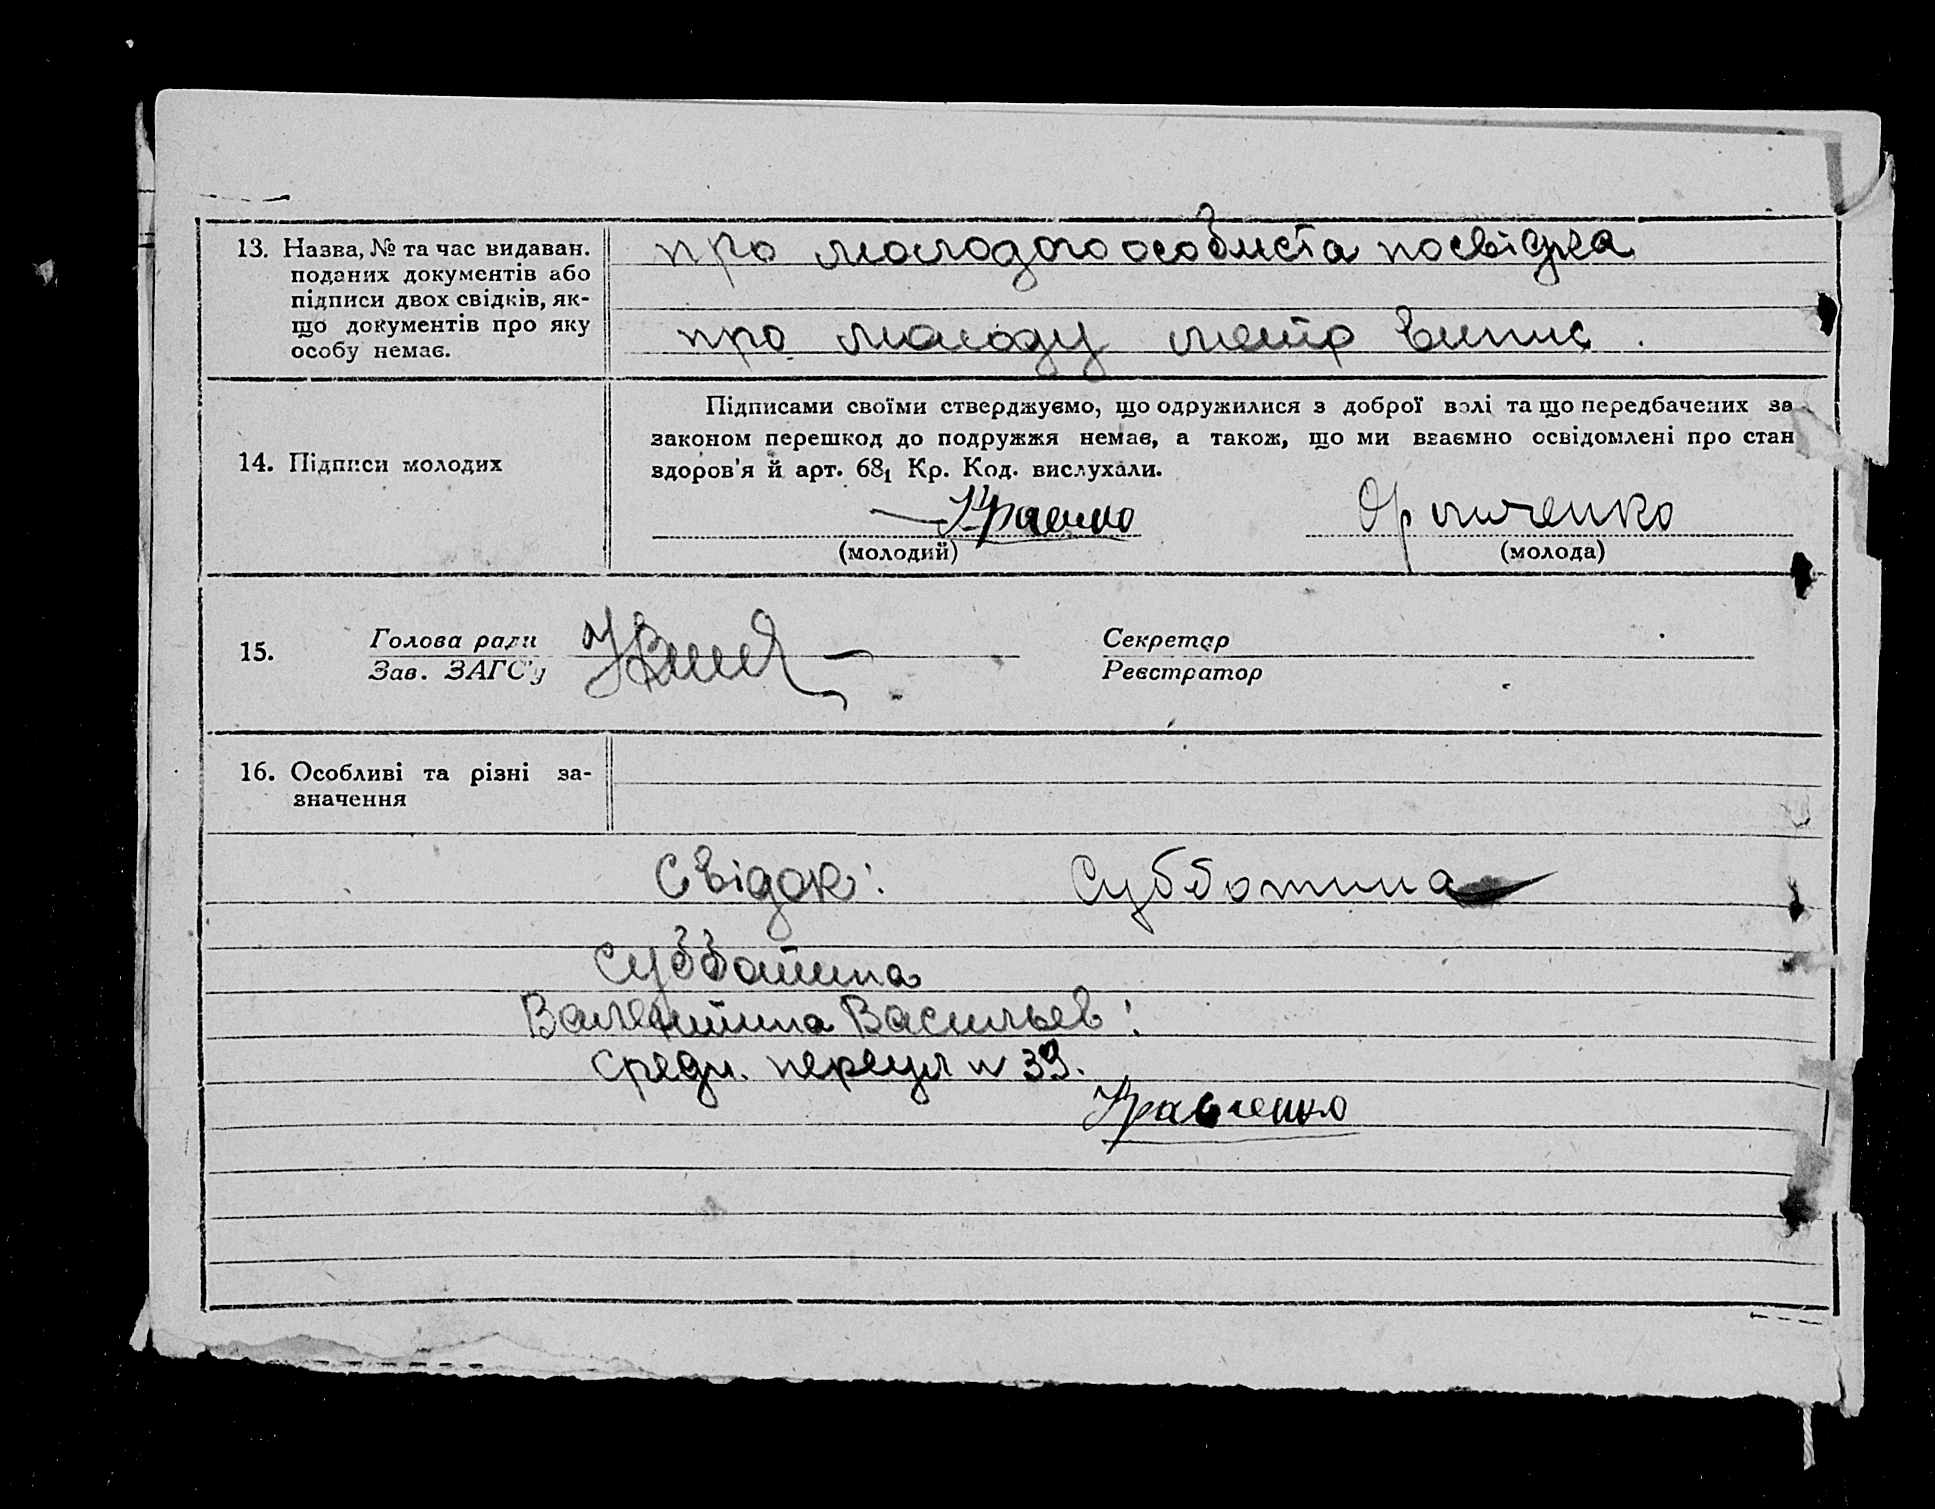 13. Назва, № та час видаван.
поданих документів або
підписи двох свідків, як-
що документів про яку
особу немає.
про молодого особиста посвідка
про молоду метр випис.
14. Підписи молодих
Підписами своїми стверджуємо, що одружилися з доброї волі та що передбачених за
законом перешкод до подружжя немає, а також, що ми взаємно освідомлені про стан
здоров'я й арт. 68₁ Кр. Код. вислухали.
(молодий)
(молода)
15.
Голова ради
Зав. ЗАГС'у
Секретар
Реєстратор
16. Особливі та різні за-
значення
Свідок: Субботина
Субботина
Валентина Васильев:
Средн. переул № 39.
Кравченко